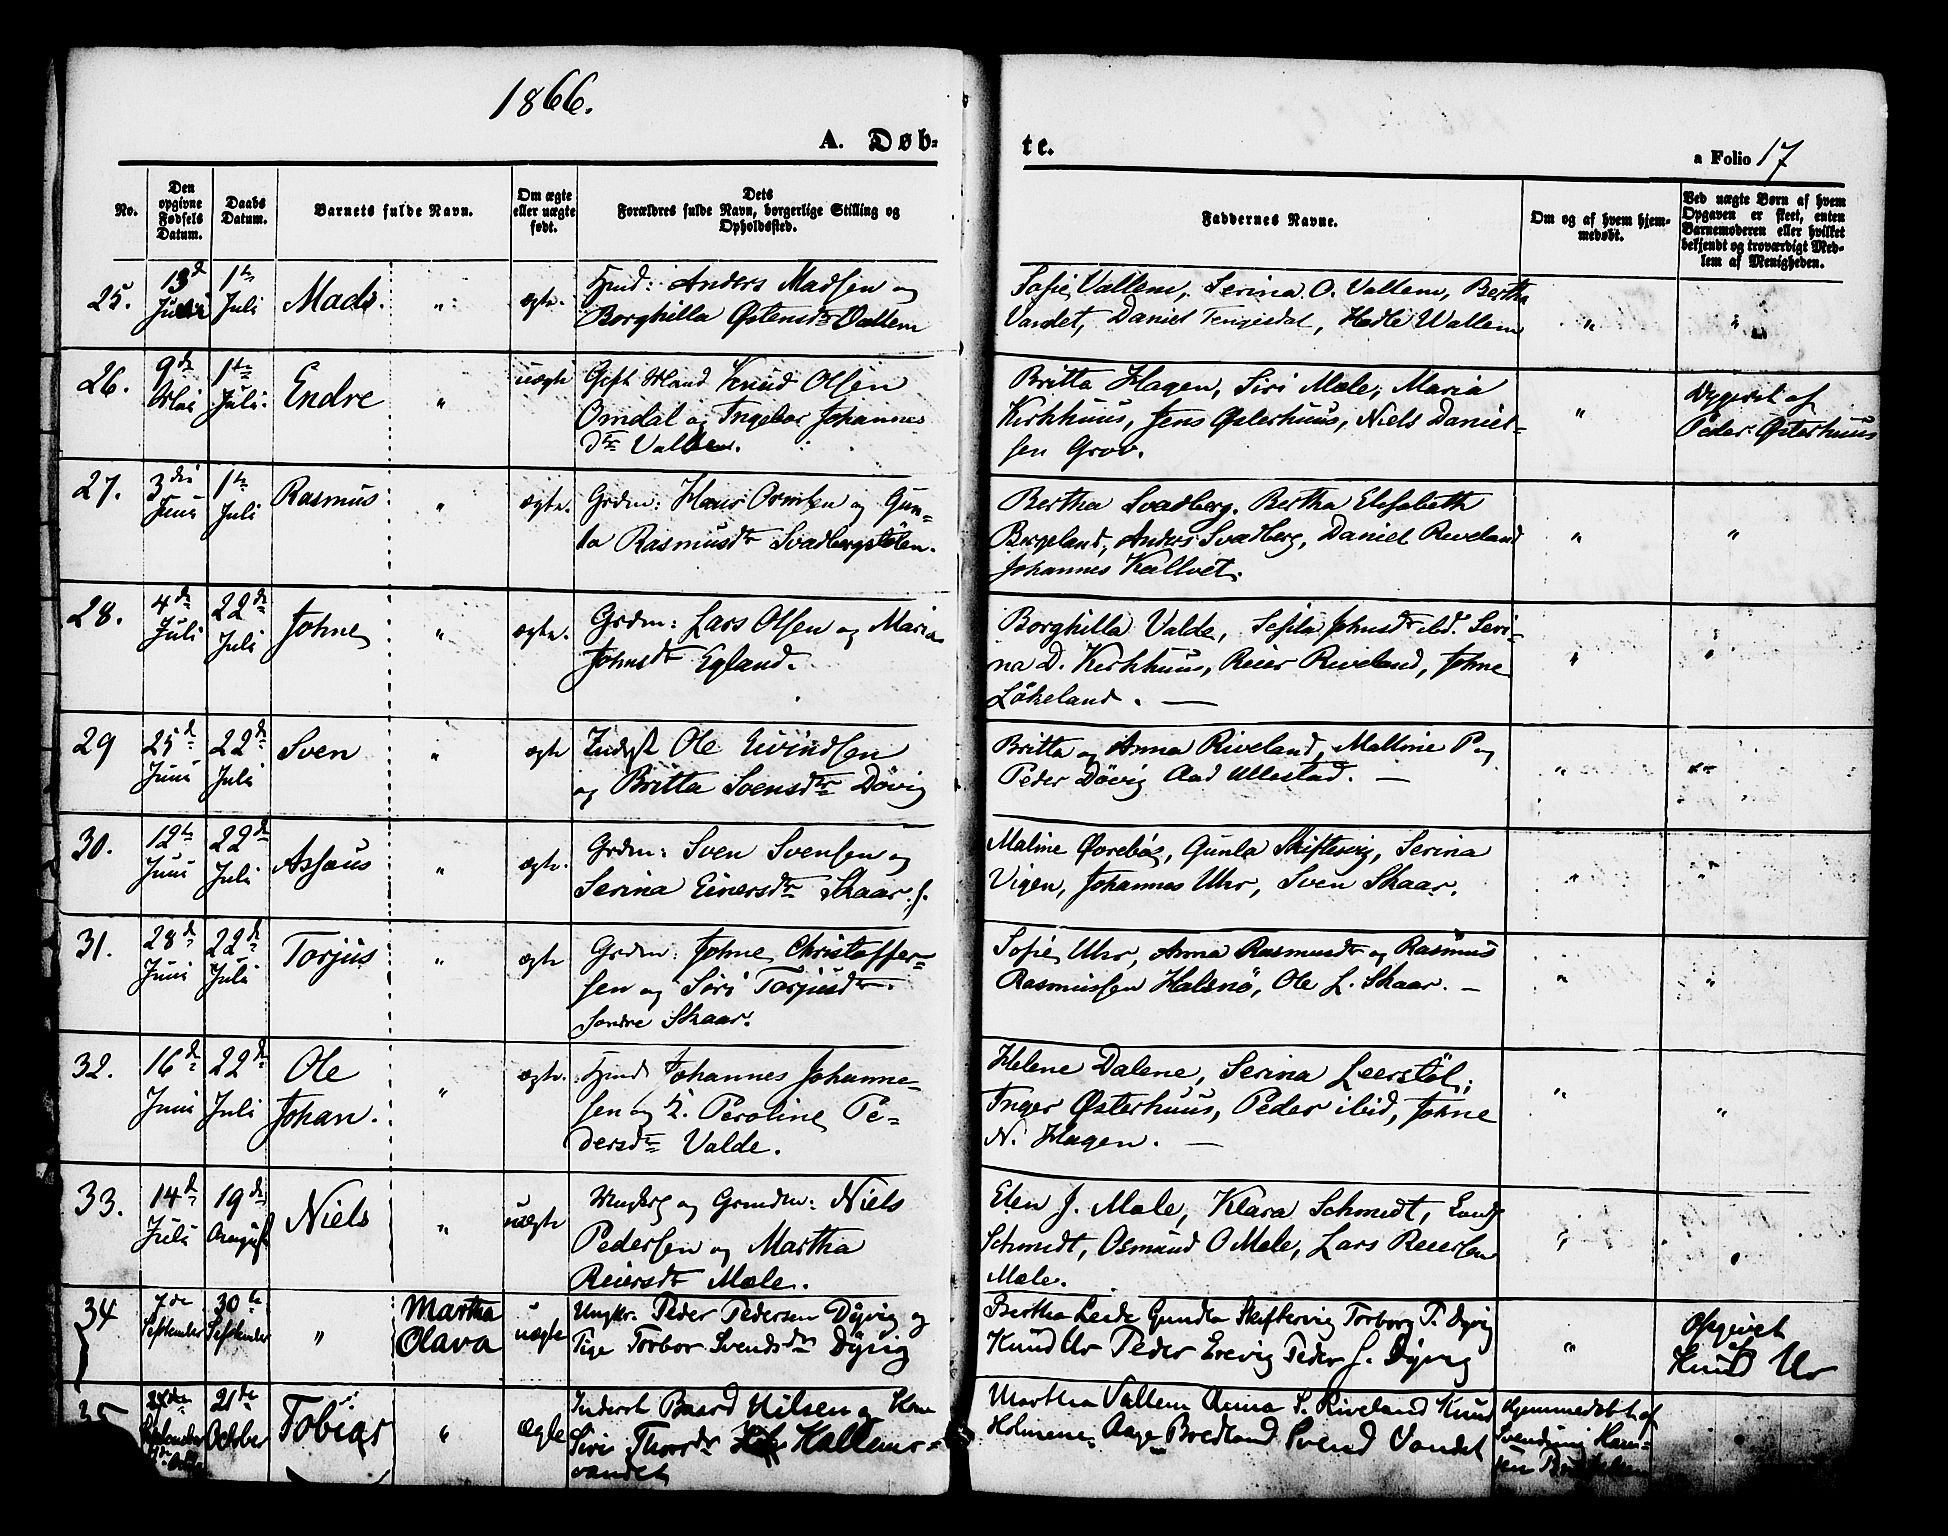 1866.
A. Døb-
te.
a Folio 17
No.
Den
opgivne
Fødsels
Datum.
Daabs
Datum.
Barnets fulde Navn.
Om ægte
eller uægte
født.
Dets
Forældres fulde Navn, borgerlige Stilling og
Opholdssted.
Faddernes Navne.
Om og af hvem hjem-
medøbt.
Ved uægte Børn af hvem
Opgaven er skeet, enten
Barnemoderen eller hvilket
bekjendt og troværdigt Med-
lem af Menigheden.
25.
13d
1te
Juli
Mads.
"
ægte.
Hmd: Anders Madsen og
Borghilla Østensdtr Vallem
Sofie Vallem, Serina O. Vallem, Bertha
Vandet, Daniel Tengesdal, Hadle Wallem
"
"
26.
9de
Mai
1te
Juli.
Endre
"
uægte
Gift Mand Knud Olsen
Omdal og Ingebor Johannes
dtr Valde.
Britta Hagen, Siri Mæle, Maria
Kirkhuus, Jens Østerhuus, Niels Daniel-
sen Grov.
"
Opgivet af
Peder Østerhuus
27.
3die
Juni
1te
Juli
Rasmus
"
ægte.
Grdm: Hans Ormsen og Gun-
la Rasmusdtr Svadbergstølen.
Bertha Svadberg. Bertha Elisabeth
Bergeland, Anders Svadberg, Daniel Riveland
Johannes Kallvet.
"
"
28.
4de
Juli
22de
Juli
Johne
"
ægte.
Grdm: Lars Olsen og Maria
Johnsdtr Egland.
Borghilla Valde, Johnsdtr ibd. Seri-
na D. Kirkhuus, Reier Riveland, Johne
Løkeland. —
"
"
29
25d
Juni
22de
Juli
Sven
"
ægte
Inderst Ole Eivindsen
og Britta Svensdtr Døvig
Britta og Anna Riveland, Malline P og
Peder Døvig Aad Ullestad. —
"
"
30.
12te
Juni
22de
Juli
Assaus
"
ægte.
Grdm: Sven Svensen og
Serina Einersdtr Skaar.
Maline Øvrebøs, Gunla Skiftesvig, Serina
Vigen, Johannes Uhr, Sven Skaar.
"
"
31.
28de
Juni
22de
Juli
Torjus
"
ægte
Grdm: Johne Christoffer-
sen og Siri Torjusdtr.
søndre Skaar.
Sofie Uhr, Anna Rasmusdtr og Rasmus
Rasmussen Halsnø, Ole L. Skaar. —
"
"
32.
16de
Juni
22de
Juli
Ole
Johan.
"
ægte.
Hmd Johannes Johanne-
sen og K. Peroline Pe-
dersdtr Valde.
Helene Dalene, Serina Leerstøl,
Inger Østerhuus, Peder ibid, Johne
N. Hagen. —
"
"
33.
14de
Juli
19de
August
Niels
"
uægte
Ungkrl og Grindem: Niels
Pedersen og Martha
Reiersdtr Mæle.
Elen J. Mæle, Klara Schmidt,
Schmidt, Osmund O Mæle, Lars Reiersen
Mæle.
"
"
34
7de
September
30te
September
"
Martha
Olava
uægte
Ungkr. Peder Pedersen Dyvig og
Pige Torbor Svendsdtr Dyvig
Bertha Leide Gundla Skiftesvig Torborg P. Dyvig
Knud Ur Peder Erevig Peder J. Dyvig
"
Opgivet
Knud Ur
35
27de
September
21de
October
Tobias
"
ægte
Inderst Baard Nilsen og Kone
Siri Thorsdtr Hallems-
vandet
Martha Vallem Anna S. Riveland Knud
Holmene Aage Bredland Svend Vandet
Hjemmedøbt af